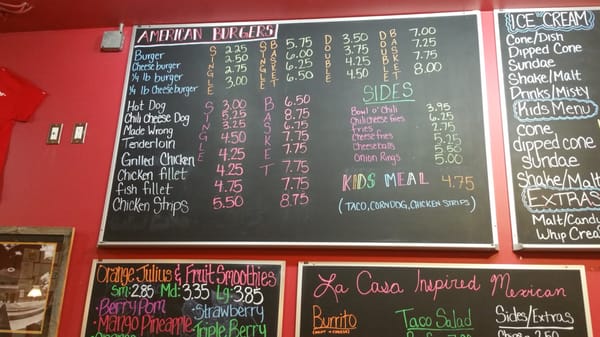 AMERICAN BURGERS
SINGLE SINGLE BASKET DOUBLE DOUBLE BASKET
Burger 2.25 5.75 3.50 7.00
Cheeseburger 2.50 6.00 3.75 7.25
1/4 lb burger 2.75 6.25 4.25 7.75
1/4 lb Cheeseburger 3.00 6.50 4.50 8.00
SINGLE BASKET
Hot Dog 3.00 6.50
Chili Cheese Dog 5.25 8.75
Made Wrong 3.25 6.75
Tenderloin 4.50 7.75
Grilled Chicken 4.25 7.75
Chicken fillet 4.25 7.75
fish fillet 4.75 7.75
Chicken Strips 5.50 8.75
SIDES
Bowl o' Chili 3.95
Chili cheese fries 6.25
fries 2.75
Cheese fries
Cheeseballs 5.50
Onion Rings 5.00
KIDS MEAL 4.75
(TACO, CORNDOG, CHICKEN STRIPS)
ICE CREAM
Cone/Dish
Dipped Cone
Sundae
Shake/Malt
Drinks/Misty
Kids Menu
cone
dipped cone
sundae
Shake/Malt
EXTRAS
Malt/Candy
Whip Cream
Orange Julius & Fruit Smoothies
Sm: 2.85 Md: 3.35 Lg: 3.85
Berry Pom Strawberry
Mango Pineapple Triple Berry
La Casa Inspired Mexican
Burrito Taco Salad Sides/Extras